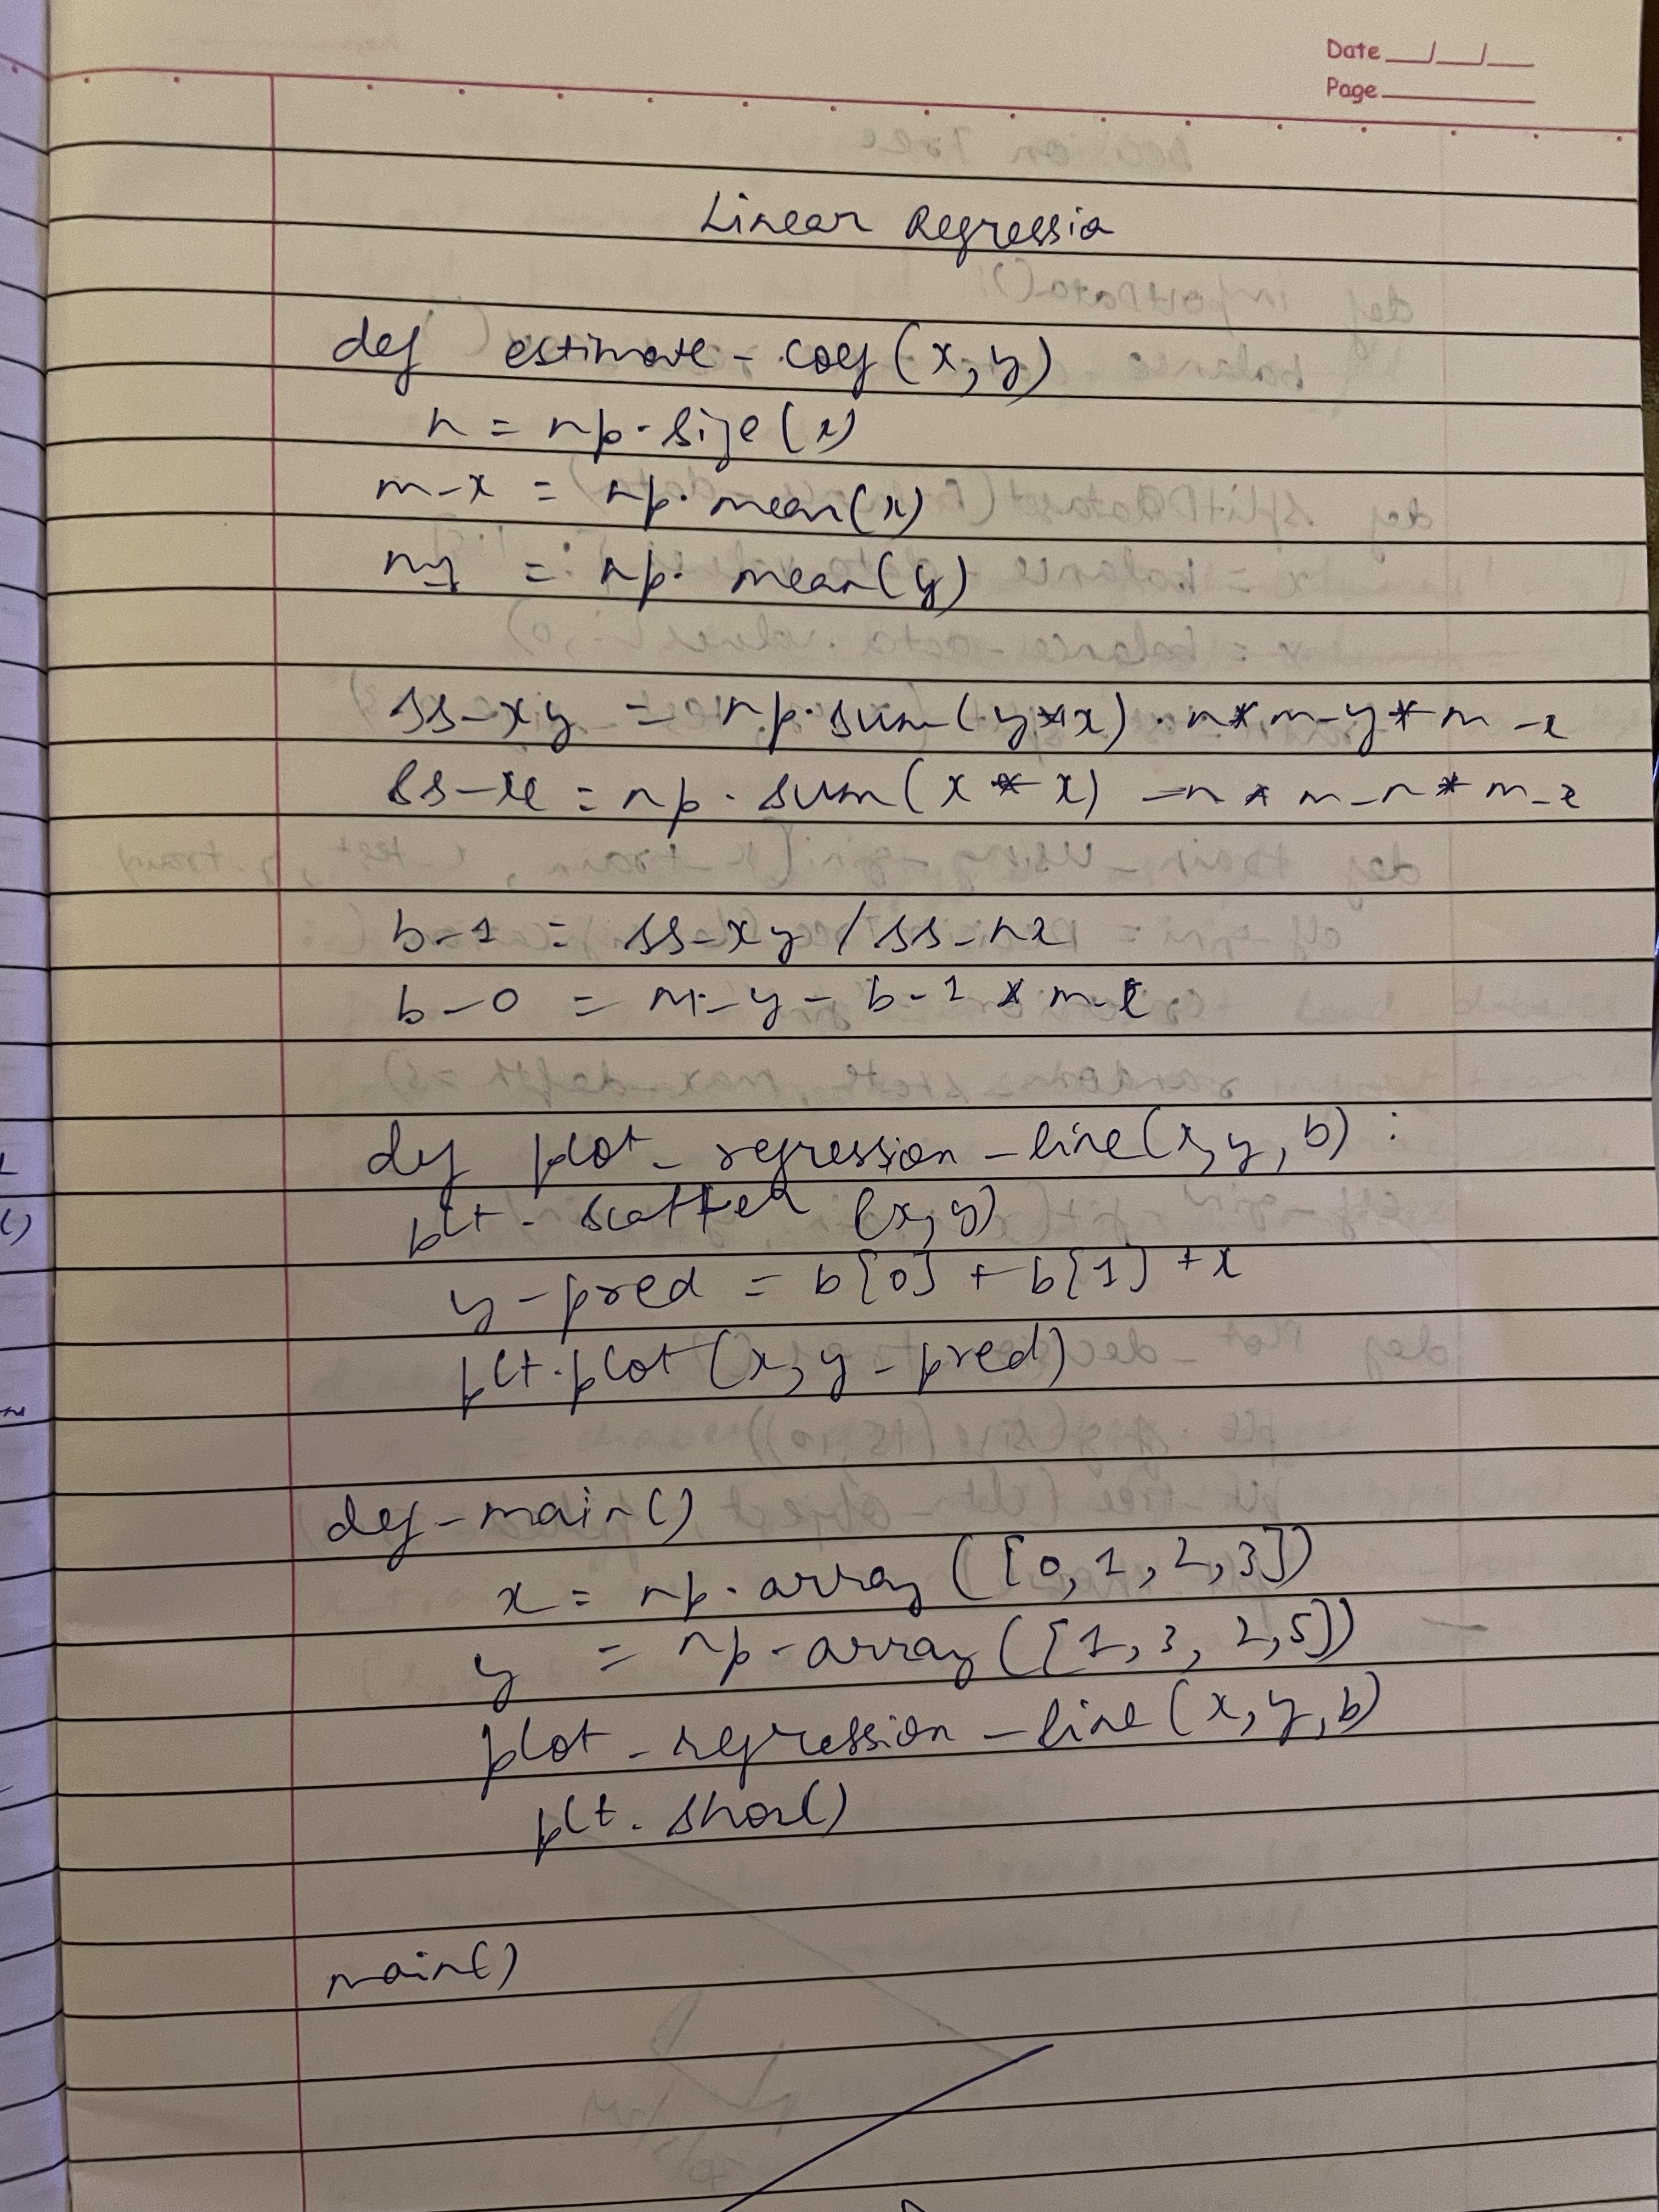 Date __/__/__
Page ______
Linear Regressio
def estimate-coef(x,y)
n = np.size(x)
m-x = np.mean(x)
m_y = np. mean(y)
ss-xy = np.sum(y*x) . n*m-y*m-x
ss-xx = np.sum(x*x) - n*m-x*m-x
b-1 = ss-xy/ss-xx
b-0 = m-y - b-1 * m-x
def plot-regression-line(x,y,b):
plt. scatter (x,y)
y-pred = b[0] + b[1] +x
plt.plot(x,y-pred)
def-main()
x = np.array([0,1,2,3])
y = np-array([1,3,2,5])
plot-regression-line(x,y,b)
plt. show()
main()